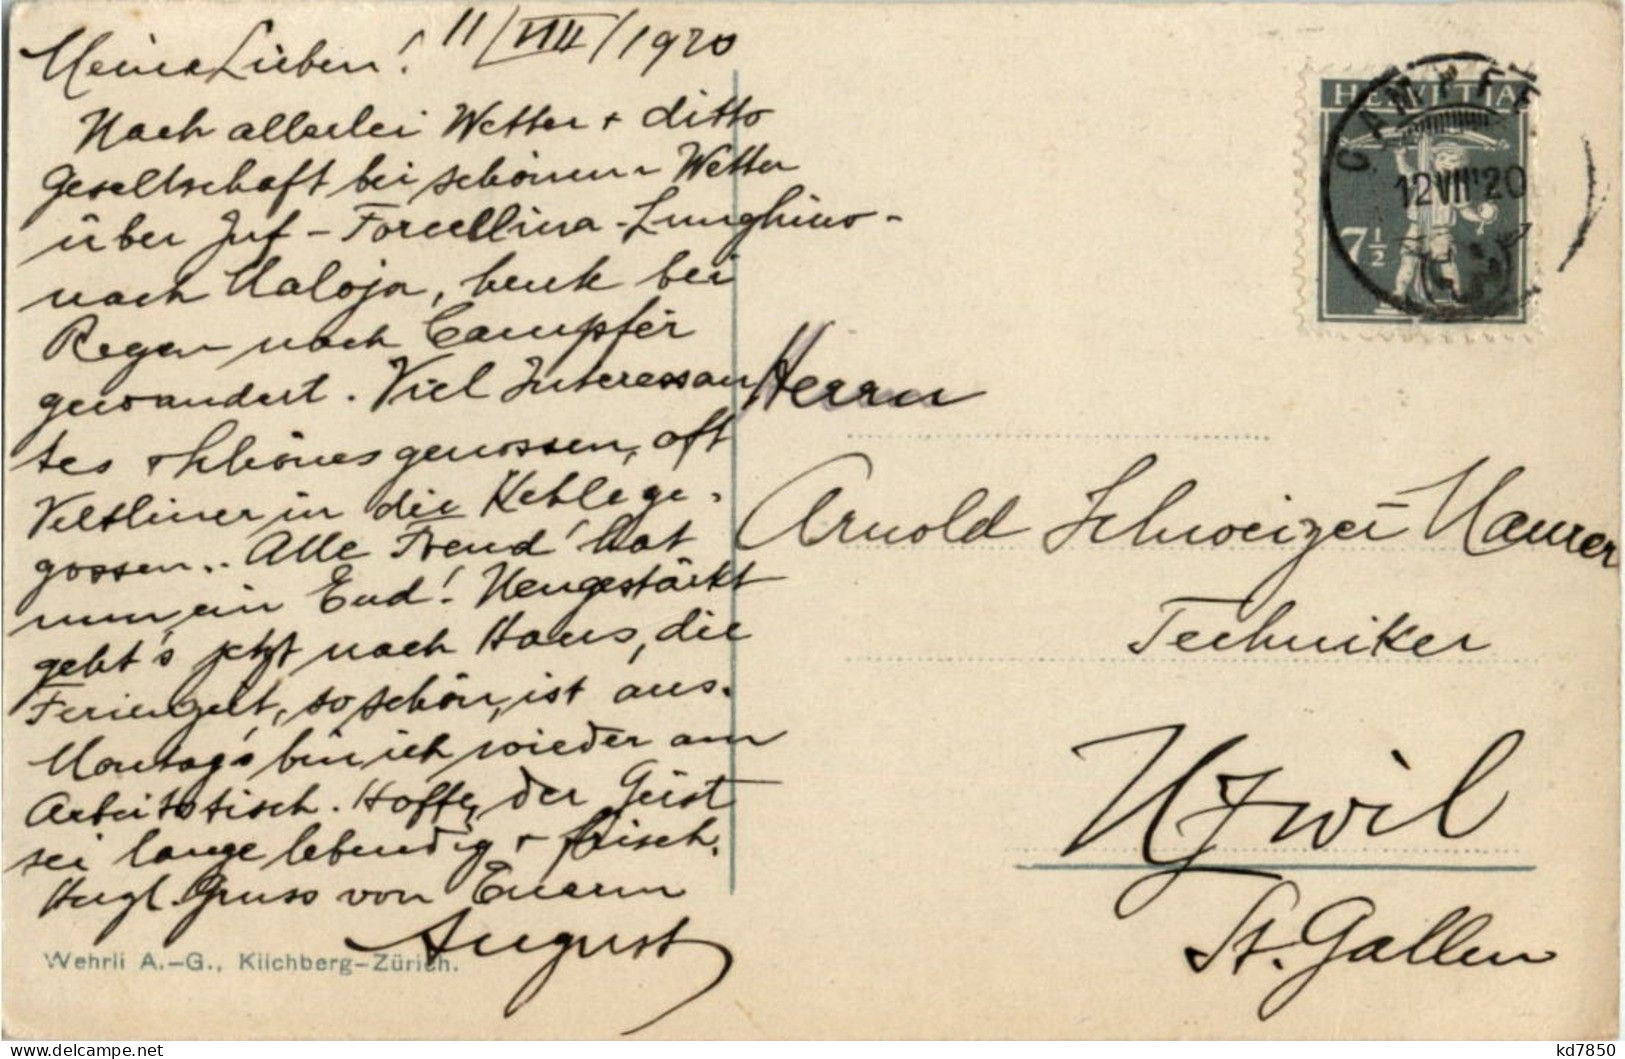 Meine Lieben! 11/VIII/1920
Nach allerlei Wetter + ditto
Gesellschaft bei schönem Wetter
über Juf - Forcellina - Lunghino -
nach Maloja, heute bei
Regen nach Campfér
gewandert. Viel Interessan
tes + Schönes genossen, oft
Veltliner in die Kehle ge-
gossen.. Alle Freud' hat
nun ein End! Neugestärkt
geht's jetzt nach Haus, die
Ferienzeit, so schön, ist aus.
Montag's bin ich wieder am
Arbeitstisch. Hoffe, der Geist
sei lange lebendig + frisch.
Herzl. Gruss von Euerm
August
Wehrli A.-G., Kilchberg-Zürich.
HELVETIA
CAMPFÈR
12 VII '20
7 1/2
Herrn
Arnold Schweizer-Maurer
Techniker
Uzwil
St. Gallen
kd7850